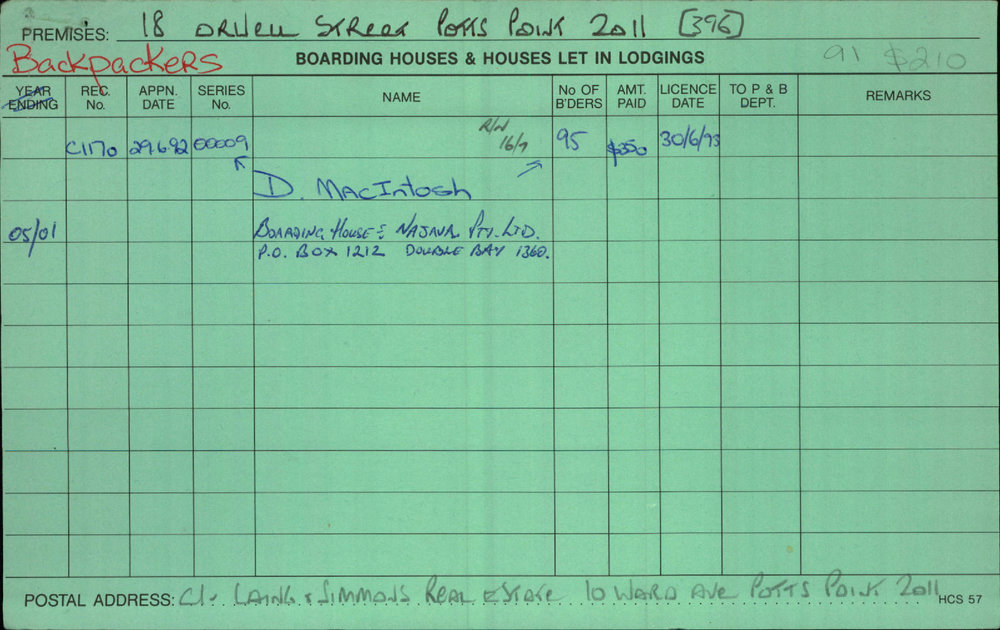 PREMISES: 18 ORWELL STREET POTTS POINT 2011 [396]
Backpackers BOARDING HOUSES & HOUSES LET IN LODGINGS 91 $210
YEAR ENDING REC. No. APPN. DATE SERIES No. NAME No OF B'DERS AMT. PAID LICENCE DATE TO P & B DEPT. REMARKS
C1170 29.6.92 00009 R/N 16/7 95 $350 30/6/93
D. MacIntosh
05/01 BOARDING HOUSE: NAJAVA PTY. LTD.
P.O. BOX 1212 DOUBLE BAY 1360.
POSTAL ADDRESS: C/- LAING & SIMMONS REAL ESTATE 10 WARD AVE POTTS POINT 2011
HCS 57